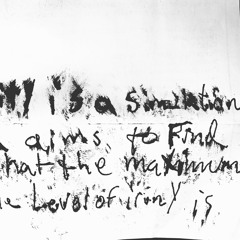 is a simulation
aims to Find
what the maximum
Level of irony is